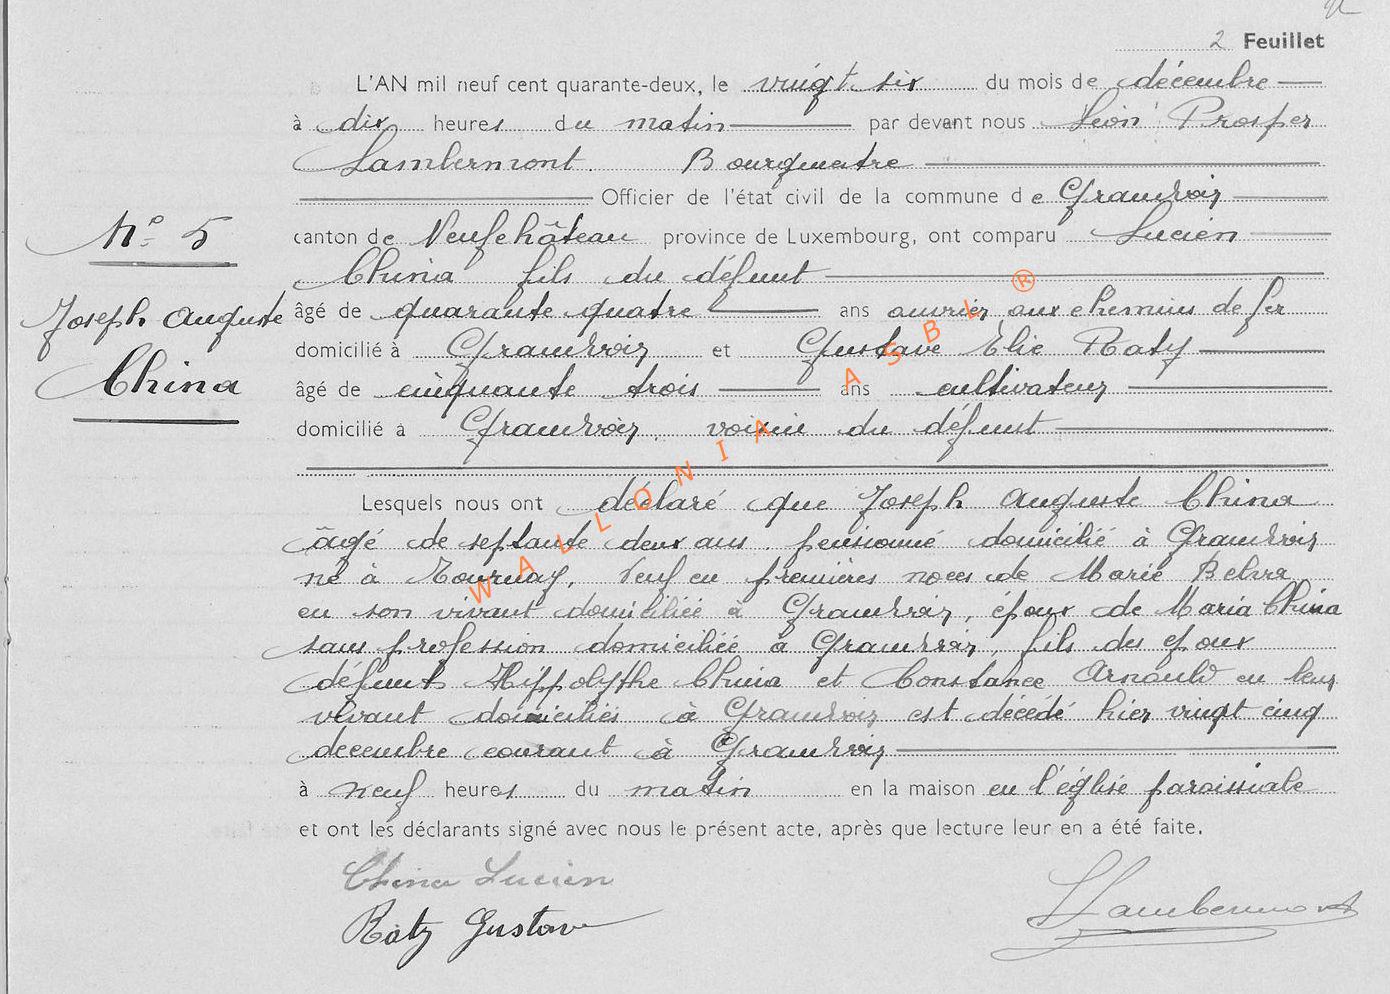 2 Feuillet
L'AN mil neuf cent quarante-deux, le vingt six du mois de décembre
à dix heures du matin par devant nous Léon Prosper
Lambermont. Bourgmestre
Officier de l'état civil de la commune de Grandvoir
N° 5
canton de Neufchâteau province de Luxembourg, ont comparu Lucien
China fils du défunt
Joseph Auguste
âgé de quarante quatre ans ouvrier aux chemins de fer
domicilié à Grandvoir et Gustave Elie Raty
China
âgé de cinquante trois ans cultivateur
domicilié à Grandvoir, voisin du défunt
Lesquels nous ont déclaré que Joseph Auguste China
âgé de septante deux ans. pensionné domicilié à Grandvoir
né à Tournay, veuf en premières noces de Marie Belva
en son vivant domiciliée à Grandvoir, époux de Maria China
sans profession domiciliée à Grandvoir, fils des époux
défunts Hippolythe China et Constance Arnould en leur
vivant domiciliés à Grandvoir est décédé hier vingt cinq
decembre courant à Grandvoir
à neuf heures du matin en la maison en l'église paroissiale
et ont les déclarants signé avec nous le présent acte, après que lecture leur en a été faite.
China Lucien
Raty Gustave
LLambermont
WALLONIA ASBL ®